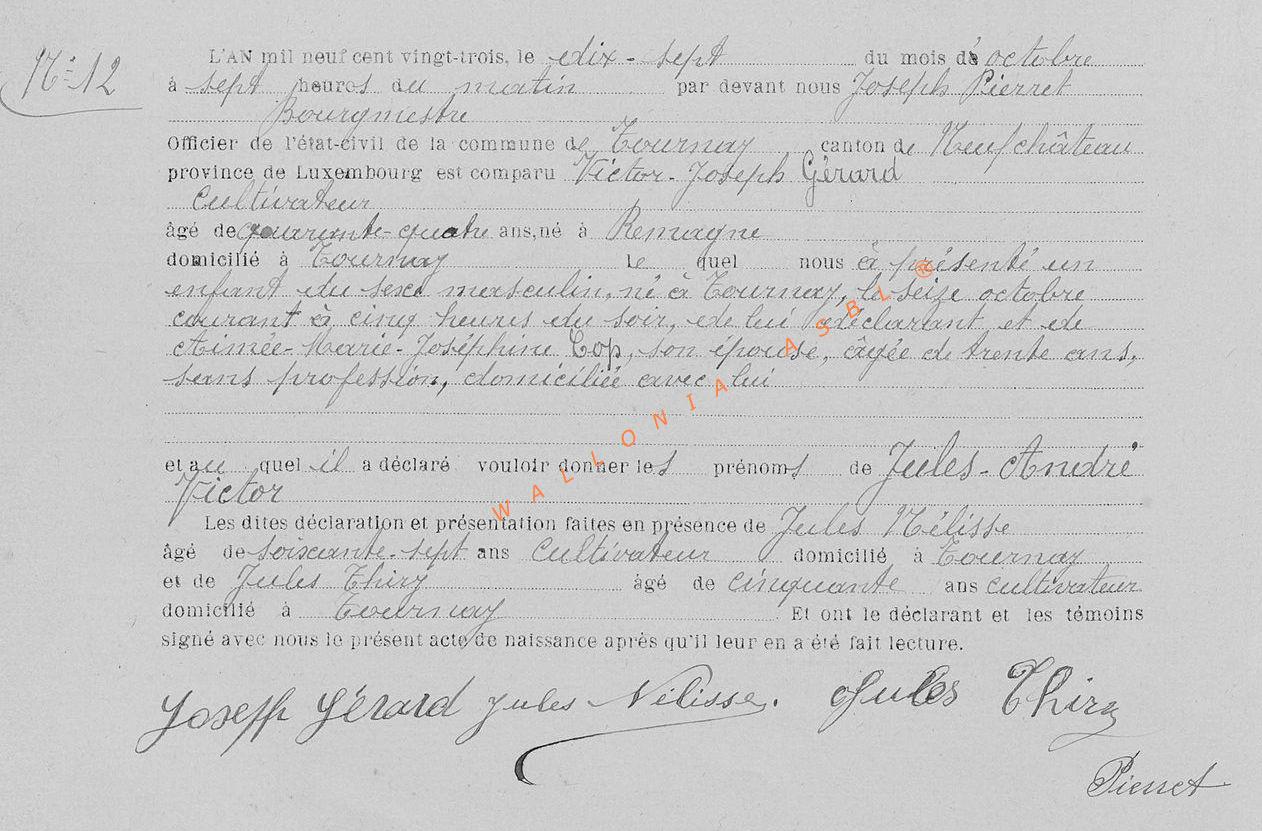 N° 12
L'AN mil neuf cent vingt-trois, le dix-sept du mois de octobre
à sept heures du matin par devant nous Joseph Pierret
Bourgmestre
Officier de l'état-civil de la commune de Tournay canton de Neufchâteau
province de Luxembourg est comparu Victor-Joseph Gérard
cultivateur
âgé de quarante-quatre ans, né à Remagne
domicilié à Tournay le quel nous à présenté un
enfant du sexe masculin, né à Tournay, le seize octobre
courant à cinq heures du soir, de lui déclarant et de
Aimée-Marie-Joséphine Cop, son épouse, âgée de trente ans,
sans profession, domiciliée avec lui
et au quel il a déclaré vouloir donner les prénoms de Jules-André
Victor
Les dites déclaration et présentation faites en présence de Jules Nélisse
âgé de soixante-sept ans cultivateur domicilié à Tournay
et de Jules Thiry âgé de cinquante ans cultivateur
domicilié à Tournay Et ont le déclarant et les témoins
signé avec nous le présent acte de naissance après qu'il leur en a été fait lecture.
Joseph Gérard Jules Nélisse. Jules Thiry
Pierret
WALLONIA ASBL ®